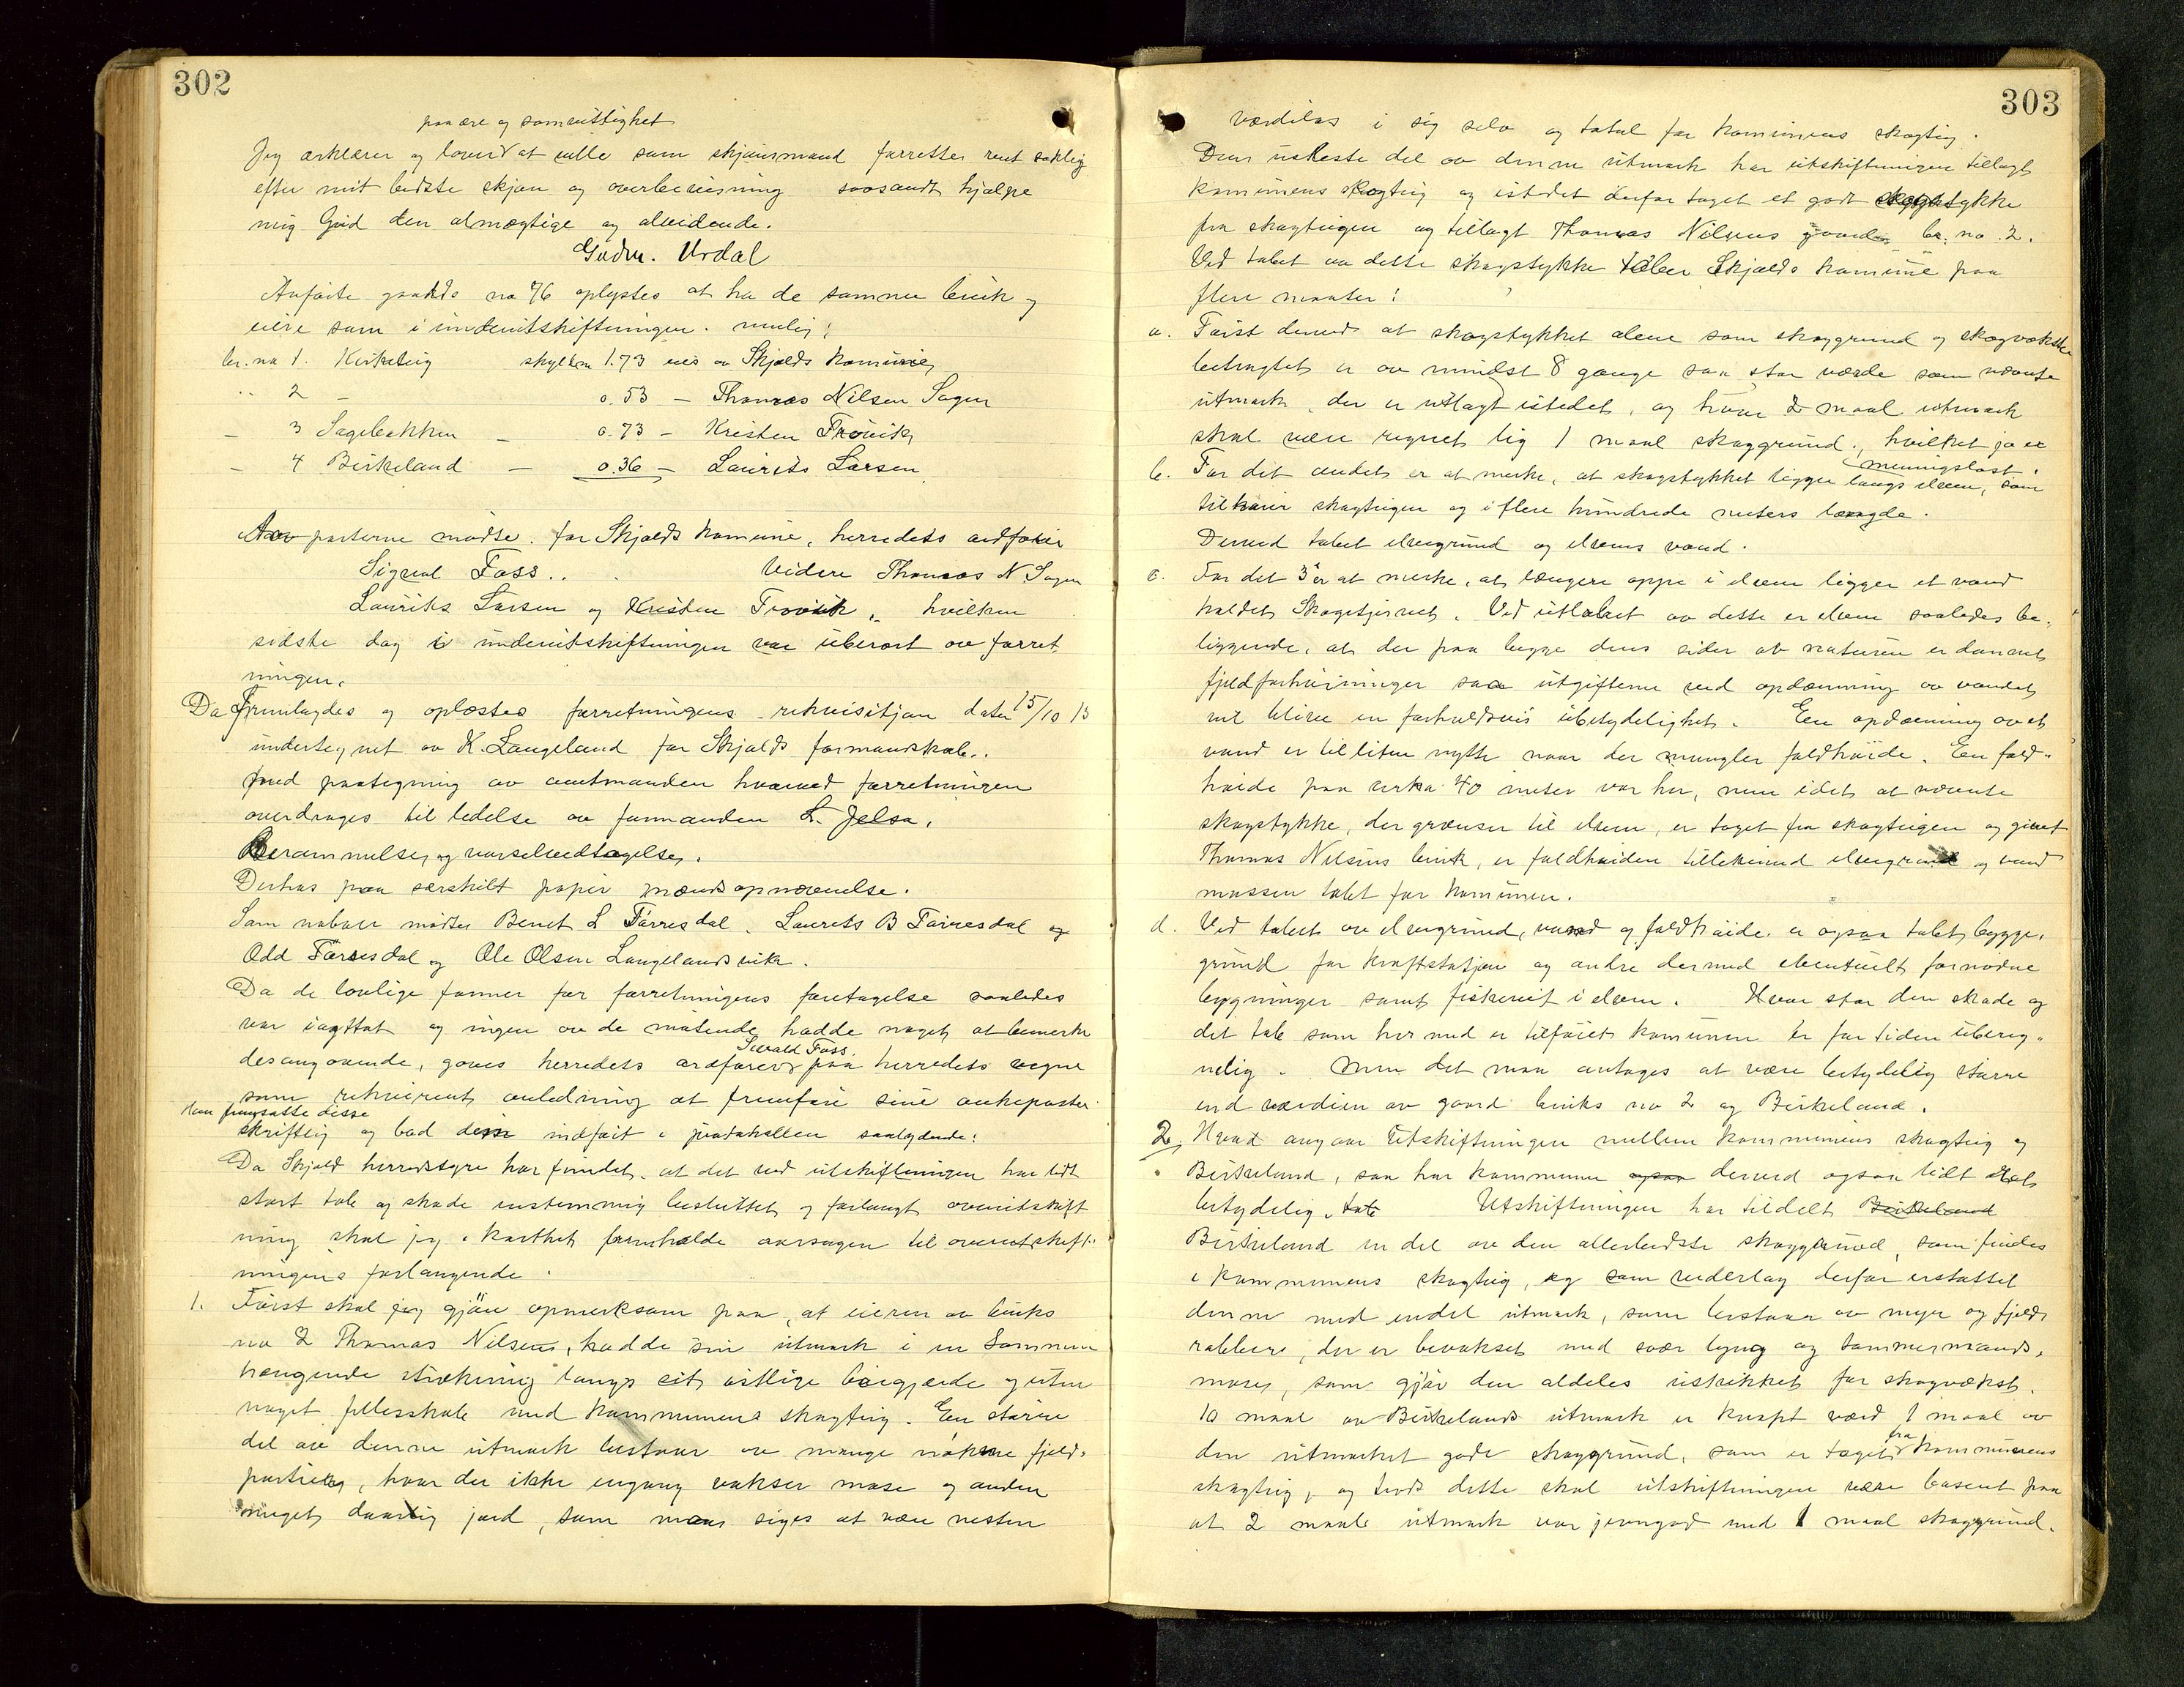 302
paa ære og samvittighet
Jeg erklærer og lover at ville som skjønsmand forretter ret saklig
efter mit bedste skjøn og overbevisning saasandt hjælpe
mig Gud den almægtige og alvidende.
Gudm. Urdal
Anførte gaards no 76 oplystes at ha de samme bruk og
eiere som i underutskiftningen. nemlig:
br. no 1. Kirketeig skyld 1.73 eies av Skjolds komune
" 2 - 0.53 - Thomas Nilsen Sagen
- 3 Sagebakken - 0.73 - Kristen Frøvik
- 4 Birkeland - 0.36 - Laurits Larsen
Av parterne mødte for Skjolds komune, herredets ordfører
Sigval Foss. Videre Thomas N. Sagen
Laurits Larsen og Kristen Frøvik, hvilken
sidste dog i underutskiftningen var uberørt av forret
ningen.
Da fremlagdes og oplæstes forretningens rekvisitjon dater 15/10 13
undertegnet av K. Langeland for Skjolds formandskab.
med paategning av amtmanden hvorved forretningen
overdrages til ledelse av formanden L. Jelsa.
Berammelse og varselvedtagelse.
Derhos paa særskilt papir mænds opnævnelse.
Som naboer mødte Berent L Førresdal. Laurits B Førresdal og
Odd Førresdal og Ole Olsen Langelandsvik.
Da de lovlige former for forretningens foretagelse saaledes
var iagttat og ingen av de møtende hadde noget at bemerke
Sivald Foss.
desangaaende, gaves herredets ordfører paa herredets vegne
som rekvirent anledning at fremføre sine ankeposter
Han fremsatte disse
skriftlig og bad dem indført i protokollen saalydende:
Da Skjold herredstyre har fundet, at det ved utskiftningen har lidt
stort tab og skade enstemmig besluttet og forlangt overutskift
ning skal jeg i korthet fremholde aarsagen til overutskift-
ningens forlangende.
1. Først skal jeg gjøre opmerksom paa, at eieren av bruks
no 2 Thomas Nilsen, hadde sin utmark i en sammen
hængende strækning langs sit østlige bøegjerde og uten
noget fellesskab med kommunens skogteig. En større
del av denne utmark bestaar av mange nøkne fjeld-
partier, hvor der ikke engang vokser mose og anden
meget daarlig jord, som maa siges at være nesten
303
verdiløs i sig selv og total for kommunens skogteig.
Den usleste del av denne utmark har utskiftningen tillagt
kommunens skogteig og istedet derfor taget et godt skogstykke
fra skogteigen og tillagt Thomas Nilsens gaards br. no. 2.
Ved tabet av dette skogstykke taber Skjolds komune paa
flere maater:
a. Først derved at skogstykket alene som skoggrund og skogvækst
betragtet er av mindst 8 gange saa stor værde som nævnte
utmark, der er utlagt istedet, og hvor 2 maal utmark
skal være regnet lig 1 maal skoggrund, hvilket jo er
meningsløst.
b. For det andet er at merke, at skogstykket ligger langs elven, som
tilhører skogteigen og i flere hundrede meters længde.
Derved tabet elvegrund og elvens vand.
c. For det 3 er at merke, at længere oppe i elven ligger et vand
kaldet Skogetjernet. Ved utløbet av dette er elven saaledes be-
liggende, at der paa begge dens sider av naturen er dannet
fjeldforhøininger saa utgifterne ved opdæmning av vandet
vil blive en forholdsvis ubetydelighet. En opdæmning av et
vand er til liten nytte naar der mangler faldhøide. En fald-
høide paa cirka 40 meter var her, men idet at nævnte
skogstykke, der grænser til elven, er taget fra skogteigen og givet
Thomas Nilsens bruk, er faldhøiden tillikemed elvegrund og vand
massen tabt for komunen.
d. Ved tabet av elvegrund, vand og faldhøide er ogsaa tabet bygge-
grund for kraftstatjon og andre dermed eventuelt fornødne
bygninger samt fiskeriet i elven. Hvor stor den skade og
det tab som her med er tilføiet komunen er for tiden ubereg-
nelig. Men det maa antages at være betydelig større
end værdien av gaard bruks no 2 og Birkeland.
2. Hvad angaar utskiftningen mellem kommunens skogteig og
Birkeland, saa har kommunen derved ogsaa lidt et
betydelig tab Utskiftningen har tildelt Birkeland
Birkeland en del av den allerbedste skoggrund, som findes
i kommunens skogteig, og som vederlag derfor erstattet
denne med endel utmark, som bestaar av myr og fjeld
rabber, der er bevokset med svær lyng og tømmermands-
mose, som gjør den aldeles uskikket for skogvækst.
10 maal av Birkelands utmark er knapt værd 1 maal av
den utmerket gode skoggrund, som er taget fra kommunens
skogteig, og trods dette skal utskiftningen være basert paa
at 2 maal utmark var jevngod med 1 maal skoggrund.